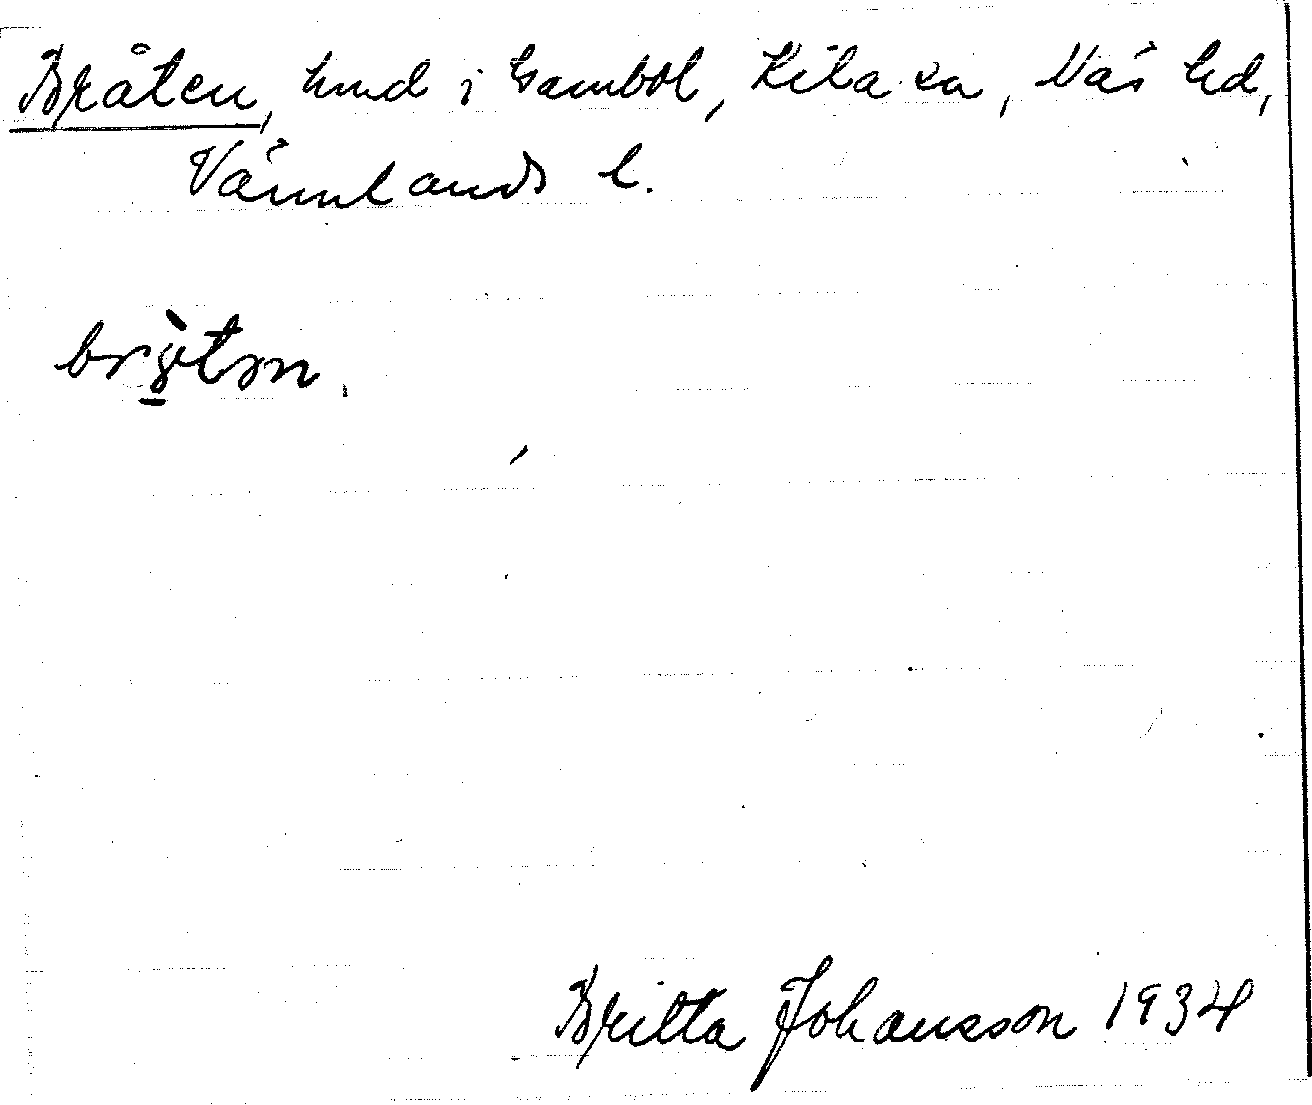 Bråten, hmd i Gambol, Kila sn, Näs hd,
Värmlands l.
Britta Johansson 1934